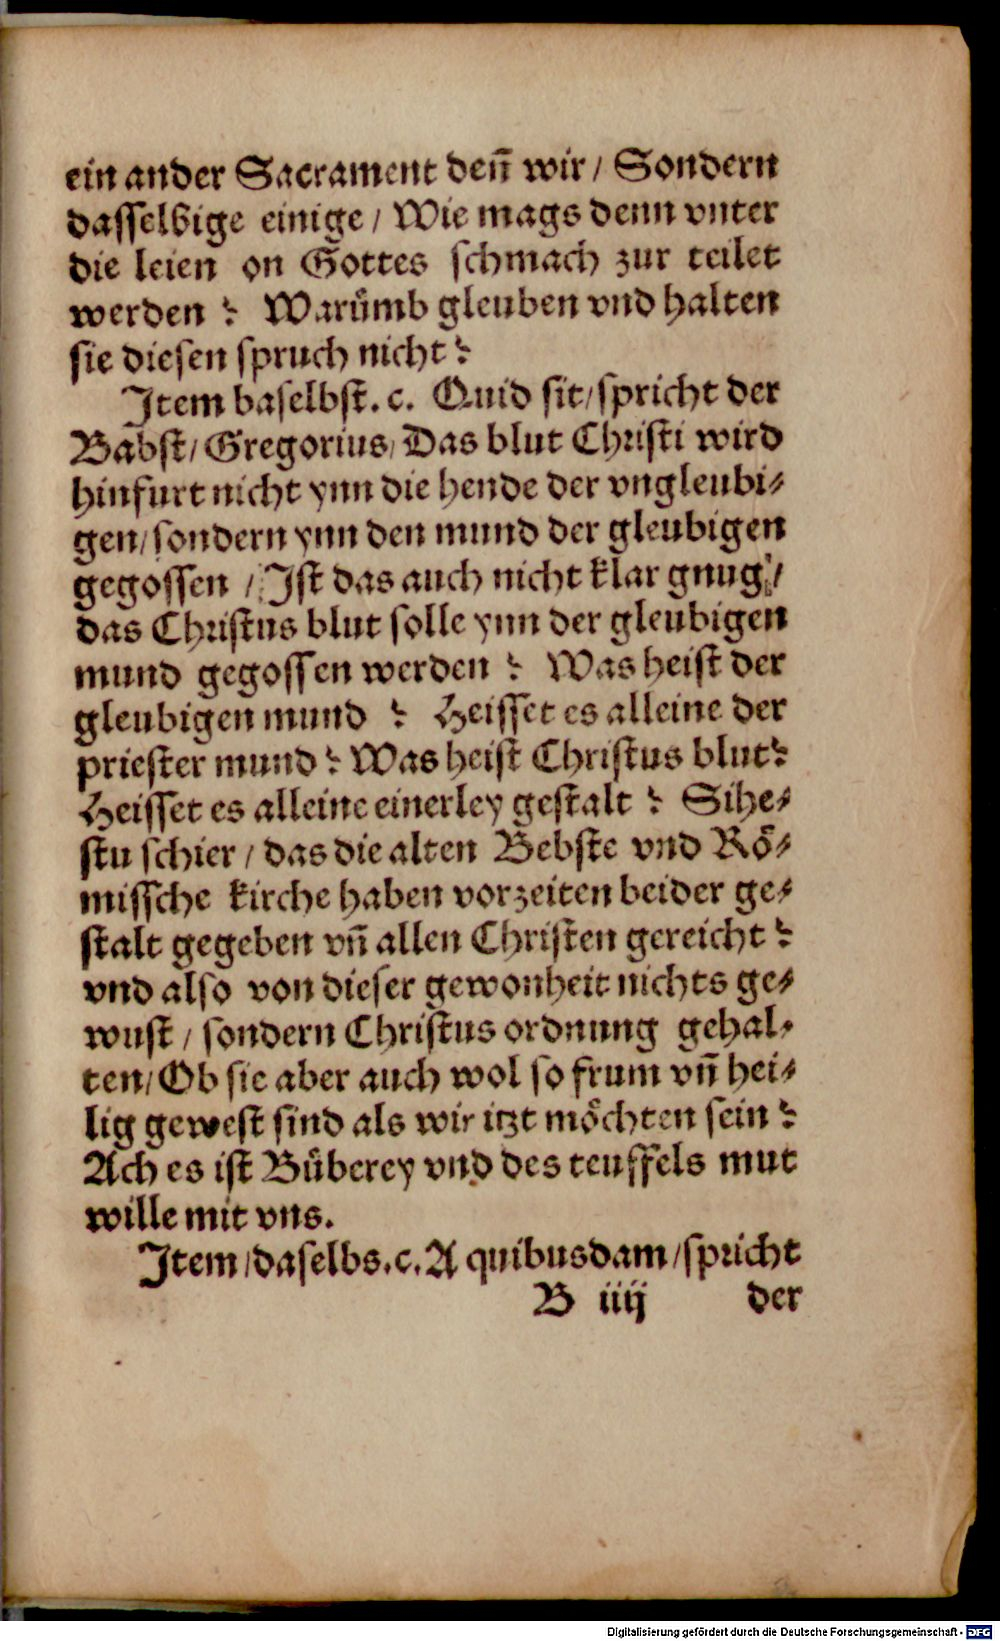 ein ander Sacrament deñ wir / Sondern
dasselbige einige / Wie mags denn vnter
die leien on Gottes schmach zur teilet
werden ? Warümb gleuben vnd halten
sie diesen spruch nicht ?
Item baselbst. c. Quid sit / spricht der
Babst / Gregorius / Das blut Christi wird
hinfurt nicht ynn die hende der vngleubi-
gen / sondern ynn den mund der gleubigen
gegossen / Ist das auch nicht klar gnug /
das Christus blut solle ynn der gleubigen
mund gegossen werden ? Was heist der
gleubigen mund ? Heisset es alleine der
priester mund ? Was heist Christus blut ?
Heisset es alleine einerley gestalt ? Sihe-
stu schier / das die alten Bebste vnd Rö-
missche kirche haben vorzeiten beider ge-
stalt gegeben vñ allen Christen gereicht ?
vnd also von dieser gewonheit nichts ge-
wust / sondern Christus ordnung gehal-
ten / Ob sie aber auch wol so frum vñ hei-
lig gewest sind als wir itzt möchten sein ?
Ach es ist Büberey vnd des teuffels mut
wille mit vns.
Item / daselbs. c. A quibusdam / spricht
B iiij der
Digitalisierung gefördert durch die Deutsche Forschungsgemeinschaft - DFG